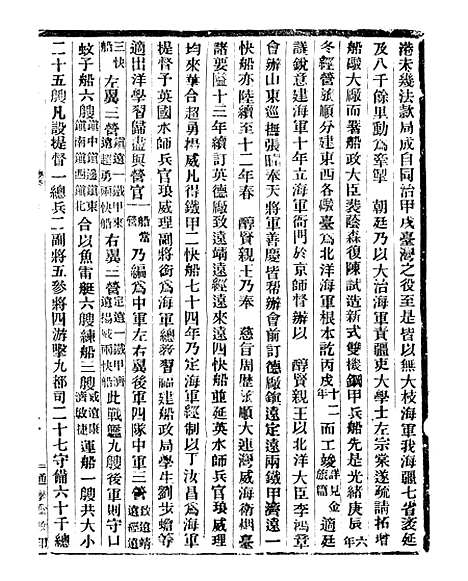 港未幾法款局成自同治甲戌臺灣之役至是皆以無大枝海軍我海疆七省袤延
及八千餘里動為牽掣　朝廷乃以大治海軍責疆吏大學士左宗棠遂疏請拓增
船礮大廠而署船政大臣裴蔭森復陳試造新式雙機鋼甲兵船先是光緒庚辰六年
冬經營旅順分建東西各礮臺為北洋海軍根本訖丙戌十二年而工竣詳見金州篇適廷
議銳意建海軍十年立海軍衙門於京師督辦以　醇賢親王以北洋大臣李鴻章
會辦山東巡撫張曜奉天將軍善慶皆幫辦會前訂德廠鎮遠定遠兩鐵甲濟遠一
快船亦陸續至十二年春　醇賢親王乃奉　慈旨周歷旅順大連灣威海衛烟臺
諸要隘十三年續訂英德廠致遠靖遠經遠來遠四快船並延英水師兵官琅威理
均來華合超勇楊威凡得鐵甲二快船七十四年乃定海軍經制以丁汝昌為海軍
提督予英國水師兵官琅威理副將銜為海軍總教習福建船政局學生劉步蟾等
適出洋學習歸盡與營官一船當一營乃編為中軍左右翼後軍四隊中軍三營致遠靖遠經遠
三快船左翼三營鎮遠一鐵甲來遠超勇兩快船右翼三營定遠一鐵甲濟遠揚威兩快船此戰艦九艘後軍則守口
蚊子船六艘鎮中鎮邊鎮東鎮南鎮西鎮北合以魚雷艇六艘練船三艘威遠康濟敏捷運船一艘共大小
二十五艘凡設提督一總兵二副將五參將四游擊九都司二十七守備六十千總